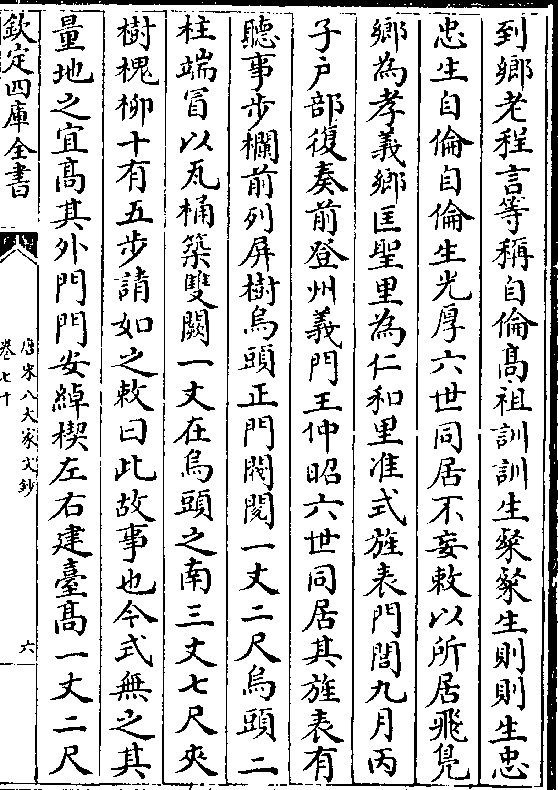 到鄉老程言等稱自倫高祖訓訓生粲粲生則則生忠
忠生自倫自倫生光厚六世同居不妄敕以所居飛鳧
鄉為孝義鄉匡聖里為仁和里准式旌表門閭九月丙
子户部復奏前登州義門王仲昭六世同居其旌表有
聽事步欄前列屏樹烏頭正門閥閱一丈二尺烏頭二
柱端冒以瓦桶築雙闕一丈在烏頭之南三丈七尺夾
樹槐柳十有五步請如之敕曰此故事也今式無之其
量地之宜高其外門門安綽楔左右建臺高一丈二尺
欽定四庫全書
唐宋八大家文鈔
卷七十
六